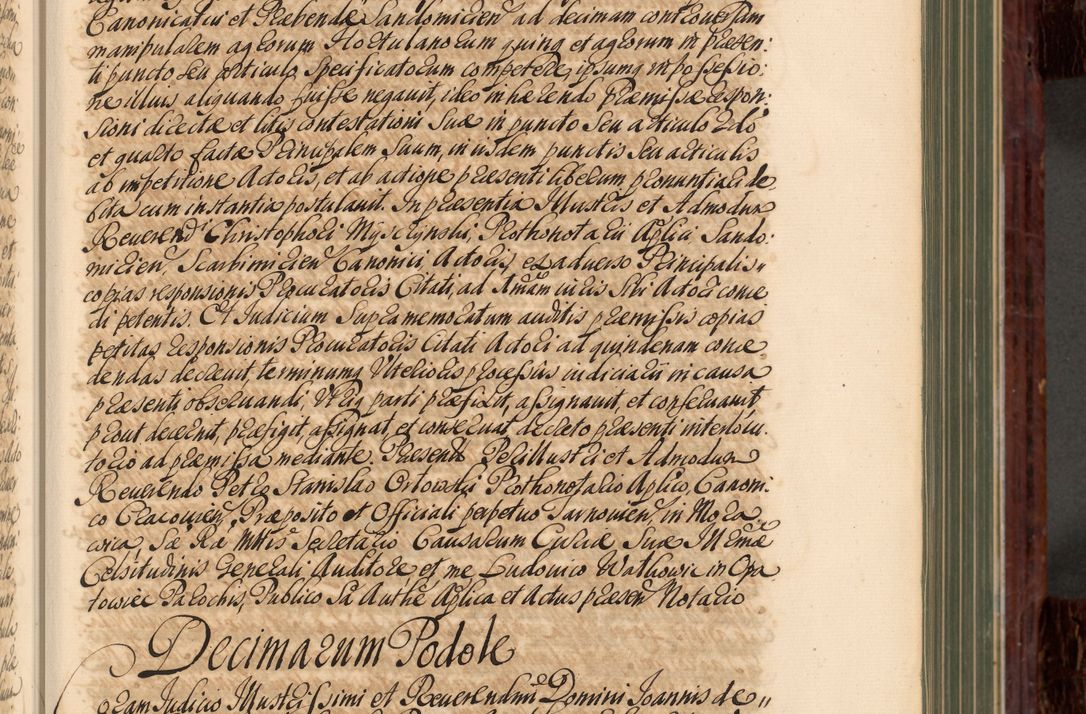 Canonicatui et Præbendæ Sandomirien ad decimam controversam
manipularem agrorum Hortulanorum quinq et agrorum in præsen:
ti puncto seu articulo specificatorum competere, ipsumq in possessio:
ne illius aliquando fuisse negauit, ideo inhærendo præmissæ respon:
sioni directæ et litis contestationi suæ in puncto seu articulo 3tio
et quarto factæ Principalem suum, in iisdem punctis seu articulis
ab impetitione Actoris, et ab actione præsenti liberum pronuntiari de
bita cum instantia postulauit. In præsentia Illustris et Admodum
Reuerendi Christophori Mysczynski, Prothonotarii Aplici, Sando:
mirien, Scarbimirien Canonici Actoris, ex aduerso Principalis
copias responsionis Procuratoris Citati, ad 15nam iuris sibi Actori conce
di petentis. Et Iudicium supramemoratum auditis præmissis copias
petitas responsionis Procuratoris Citati Actori ad quindenam conce
dendas decreuit, terminumq Ulterioris processus iudiciarii in causa
præsenti obseruandi, Utriq parti præfixit, assignauit, et conseruauit
prout decernit, præfigit, assignat et conseruat decreto præsenti interlocu
torio ad præmissa mediante. Præsente Perillustri et Admodum
Reuerendo Petro Stanislao Orlowski Prothonotario Aplico, Canoni:
co Cracouien, Præposito et Officiali perpetuo Tarnouien, in Mora
wica, Sæ Ræ Mttis Secretario Causarum Curiæ Suæ Illmæ
Celsitudinis Generali Auditore et me Ludouico Wałkowic in Opa
towiec Parochis, Publico Sa Authe Aplica et Actus præsen Notario
Decimarum Podole
Coram Iudicio Illustrissimi et Reuerendmi Domini Ioannis de